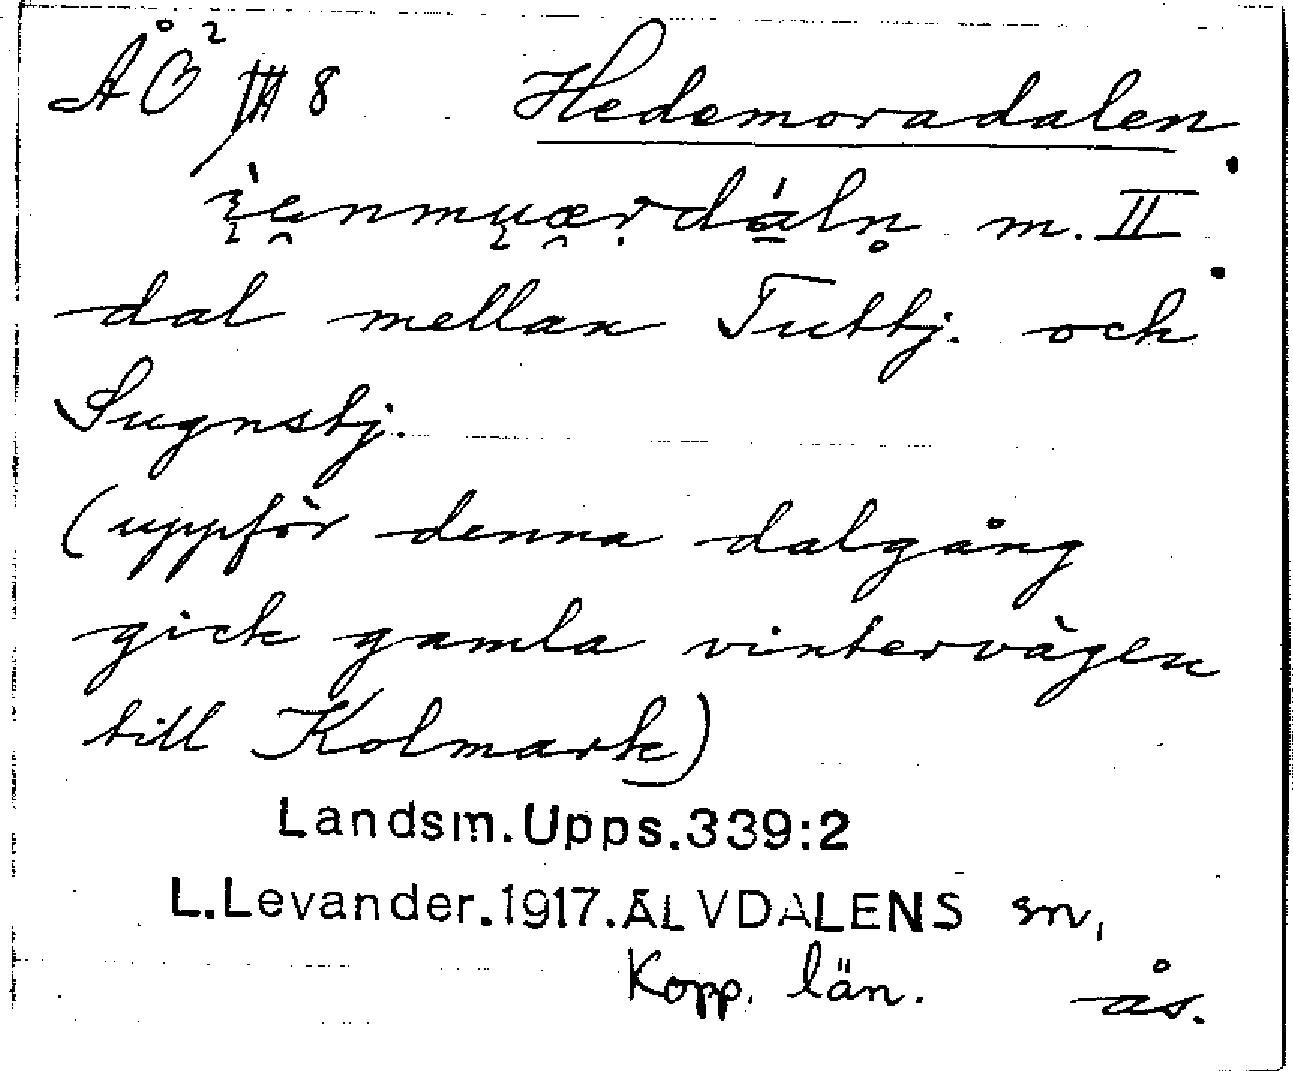 ÅÖ² III 8 Hedemoradalen
m. II
dal mellan Tuttbj. och
Sugnsbj.
(uppför denna dalgång
gick gamla vintervägen
till Kolmark)
Landsm.Upps.339:2
L.Levander.1917.ÄLVDALENS sn,
Kopp. län. ås.